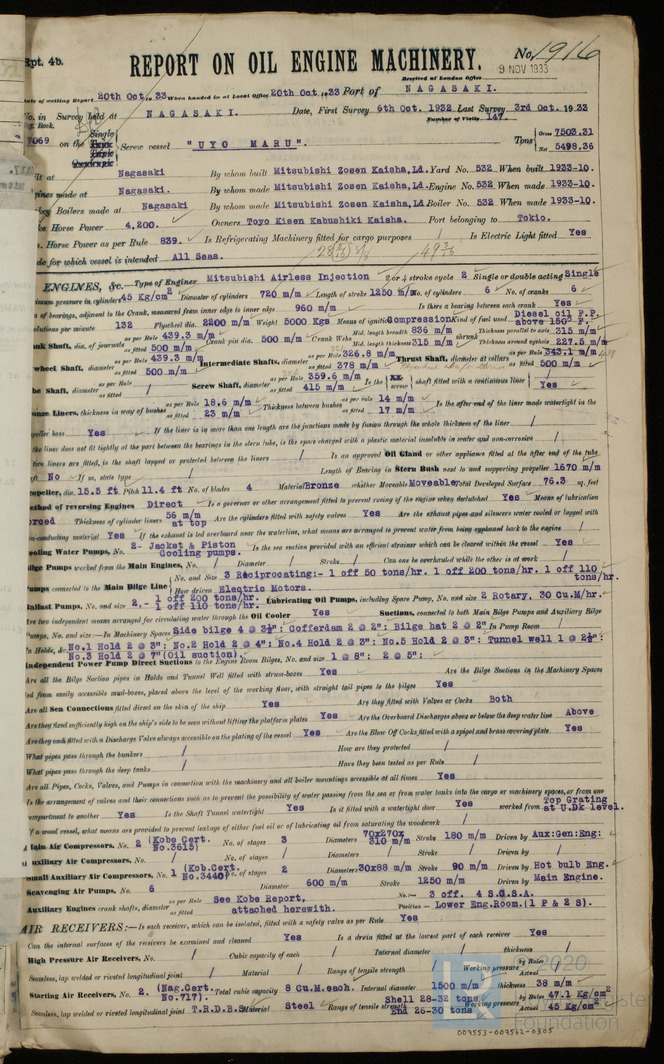 Rpt. 4b.
REPORT ON OIL ENGINE MACHINERY.
No. 1916
Received at London Office 9 NOV 1933
Date of writing Report 20th Oct. 19 33 When handed in at Local Office 20th Oct. 19 33 Port of NAGASAKI.
No. in Survey held at NAGASAKI. Date, First Survey 6th Oct. 1932 Last Survey 3rd Oct. 19 33
Reg. Book. Number of Visits 147.
7069 on the Single Screw vessel "UYO MARU". Tons Gross 7503.31 Net 5498.36
Built at Nagasaki By whom built Mitsubishi Zosen Kaisha, Ld. Yard No. 532 When built 1933-10.
Engines made at Nagasaki. By whom made Mitsubishi Zosen Kaisha, Ld. Engine No. 532 When made 1933-10.
Donkey Boilers made at Nagasaki By whom made Mitsubishi Zosen Kaisha, Ld. Boiler No. 532 When made 1933-10.
Brake Horse Power 4,200. Owners Toyo Kisen Kabushiki Kaisha. Port belonging to Tokio.
Nom. Horse Power as per Rule 839. Is Refrigerating Machinery fitted for cargo purposes / Is Electric Light fitted Yes
Trade for which vessel is intended All Seas.
ENGINES, &c.—Type of Engines Mitsubishi Airless Injection 2 or 4 stroke cycle 2 Single or double acting Single
Maximum pressure in cylinders 45 Kg/cm2 Diameter of cylinders 720 m/m Length of stroke 1250 m/m No. of cylinders 6 No. of cranks 6
Span of bearings, adjacent to the Crank, measured from inner edge to inner edge 960 m/m Is there a bearing between each crank Yes
Revolutions per minute 132 Flywheel dia. 2200 m/m Weight 5000 Kgs Means of ignition Compression Kind of fuel used Diesel oil F.P. above 150° F.
Crank Shaft, dia. of journals as per Rule 439.3 m/m as fitted 500 m/m Crank pin dia. 500 m/m Crank Webs Mid. length breadth 836 m/m Mid. length thickness 315 m/m shrunk Thickness parallel to axis 315 m/m Thickness around eyehole 227.5 m/m
Flywheel Shaft, diameter as per Rule 439.3 m/m as fitted 500 m/m Intermediate Shafts, diameter as per Rule 326.8 m/m as fitted 378 m/m Thrust Shaft, diameter at collars as per Rule 343.1 m/m as fitted 500 m/m
Tube Shaft, diameter as per Rule / as fitted / Screw Shaft, diameter as per Rule 359.6 m/m as fitted 415 m/m Is the screw shaft fitted with a continuous liner Yes
Bronze Liners, thickness in way of bushes as per Rule 18.6 m/m as fitted 23 m/m Thickness between bushes as per Rule 14 m/m as fitted 17 m/m Is the after end of the liner made watertight in the
propeller boss Yes If the liner is in more than one length are the junctions made by fusion through the whole thickness of the liner /
If the liner does not fit tightly at the part between the bearings in the stern tube, is the space charged with a plastic material insoluble in water and non-corrosive /
If two liners are fitted, is the shaft lapped or protected between the liners / Is an approved Oil Gland or other appliance fitted at the after end of the tube
shaft No If so, state type / Length of Bearing in Stern Bush next to and supporting propeller 1670 m/m
Propeller, dia. 15.5 ft Pitch 11.4 ft No. of blades 4 Material Bronze whether Moveable Moveable Total Developed Surface 76.3 sq. feet
Method of reversing Engines Direct Is a governor or other arrangement fitted to prevent racing of the engine when declutched Yes Means of lubrication
Forced Thickness of cylinder liners 56 m/m at top Are the cylinders fitted with safety valves Yes Are the exhaust pipes and silencers water cooled or lagged with
non-conducting material Yes If the exhaust is led overboard near the waterline, what means are arranged to prevent water from being syphoned back to the engine /
Cooling Water Pumps, No. 2- Jacket & Piston Cooling pumps. Is the sea suction provided with an efficient strainer which can be cleared within the vessel Yes
Bilge Pumps worked from the Main Engines, No. / Diameter / Stroke / Can one be overhauled while the other is at work /
Pumps connected to the Main Bilge Line No. and Size 3 Reciprocating:- 1 off 50 tons/hr. 1 off 200 tons/hr. 1 off 110 tons/hr.
How driven Electric Motors.
Ballast Pumps, No. and size 2.- 1 off 200 tons/hr. 1 off 110 tons/hr. Lubricating Oil Pumps, including Spare Pump, No. and size 2 Rotary, 30 Cu.M/hr.
Are two independent means arranged for circulating water through the Oil Cooler Yes Suctions, connected to both Main Bilge Pumps and Auxiliary Bilge
Pumps, No. and size:—In Machinery Spaces Side bilge 4 @ 3½": Cofferdam 2 @ 2": Bilge hat 2 @ 2" In Pump Room /
In Holds, &c. No.1 Hold 2 @ 3": No.2 Hold 2 @ 4": No.4 Hold 2 @ 3": No.5 Hold 2 @ 3": Tunnel well 1 @ 2½":
No.3 Hold 2 @ 7"(Oil suction).
Independent Power Pump Direct Suctions to the Engine Room Bilges, No. and size 1 @ 8": 2 @ 5":
Are all the Bilge Suction pipes in Holds and Tunnel Well fitted with strum-boxes Yes Are the Bilge Suctions in the Machinery Spaces
led from easily accessible mud-boxes, placed above the level of the working floor, with straight tail pipes to the bilges Yes
Are all Sea Connections fitted direct on the skin of the ship Yes Are they fitted with Valves or Cocks Both
Are they fixed sufficiently high on the ship's side to be seen without lifting the platform plates Yes Are the Overboard Discharges above or below the deep water line Above
Are they each fitted with a Discharge Valve always accessible on the plating of the vessel Yes Are the Blow Off Cocks fitted with a spigot and brass covering plate Yes
What pipes pass through the bunkers / How are they protected /
What pipes pass through the deep tanks / Have they been tested as per Rule /
Are all Pipes, Cocks, Valves, and Pumps in connection with the machinery and all boiler mountings accessible at all times Yes
Is the arrangement of valves and their connections such as to prevent the possibility of water passing from the sea or from water tanks into the cargo or machinery spaces, or from one
compartment to another Yes Is the Shaft Tunnel watertight Yes Is it fitted with a watertight door Yes worked from Top Grating at U.Dk level.
If a wood vessel, what means are provided to prevent leakage of either fuel oil or of lubricating oil from saturating the woodwork /
Main Air Compressors, No. 2 (Kobe Cert. No.3615) No. of stages 3 Diameters 70x270x 310 m/m Stroke 180 m/m Driven by Aux:Gen:Eng:
Auxiliary Air Compressors, No. / No. of stages / Diameters / Stroke / Driven by /
Small Auxiliary Air Compressors, No. 1 (Kob.Cert. No.3440) No. of stages 2 Diameters 30x88 m/m Stroke 90 m/m Driven by Hot bulb Eng.
Scavenging Air Pumps, No. 6 Diameter 600 m/m Stroke 1250 m/m Driven by Main Engine.
Auxiliary Engines crank shafts, diameter as per Rule as fitted See Kobe Report, attached herewith. No:— 3 off. 4 S.C.S.A.
Position— Lower Eng.Room.(1 P & 2 S).
AIR RECEIVERS:—Is each receiver, which can be isolated, fitted with a safety valve as per Rule Yes
Can the internal surfaces of the receivers be examined and cleaned Yes Is a drain fitted at the lowest part of each receiver Yes
High Pressure Air Receivers, No. / Cubic capacity of each / Internal diameter / thickness /
Seamless, lap welded or riveted longitudinal joint / Material / Range of tensile strength / Working pressure by Rules Actual /
Starting Air Receivers, No. 2. (Nag.Cert. No.717). Total cubic capacity 8 Cu.M.each. Internal diameter 1500 m/m thickness 38 m/m
Seamless, lap welded or riveted longitudinal joint T.R.D.B.S. Material Steel Range of tensile strength Shell 28-32 tons End 26-30 tons Working pressure by Rules 47.1 Kg/cm2 Actual 45 Kg/cm2
© 2020
Lloyd's Register
Foundation
007553-007562-0305